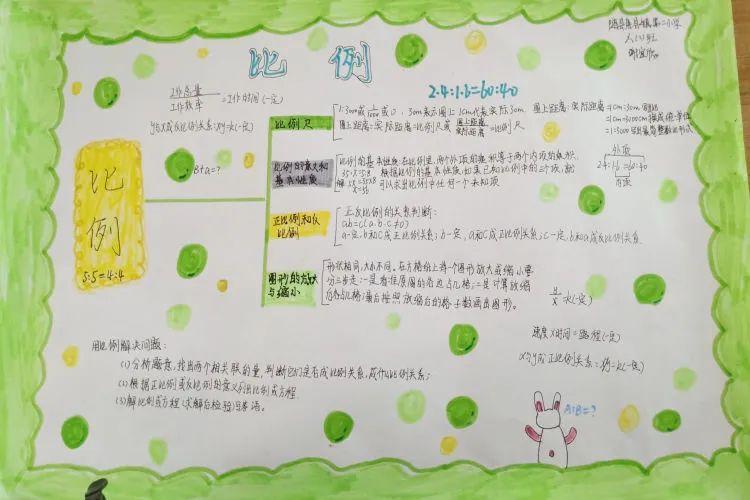 比例
2.4:1.6=60:40
工作总量
工作效率
=工作时间(一定)
y与x成反比例关系:xy=k(一定)
B÷a=?
比例
5:5=4:4
比例尺
图上距离=实际距离×比例尺或
图上距离
实际距离
=比例尺
图上距离:实际距离
比例的意义和
基本性质
比例的基本性质:在比例里,两个外项的积等于两个内项的积
根据比例的基本性质,如果已知比例中的三个项,就
可以求出比例中任何一个未知项
外项
2.4:1.6=60:40
内项
正比例和反
比例
正反比例的关系判断:
ab=c(a.b.c≠0)
a一定,b和c成正比例关系;b一定,a和c成正比例关系;c一定,b和a成反比例关系.
图形的放大
与缩小
形状相同,大小不同。在方格纸上将一个图形放大或缩小要
分三步走:一是看:原图的各边占几格;二是计算放缩
后各占几格;最后按照放缩后的格子数画出图形。
y/x=k(一定)
速度×时间=路程(一定)
x与y成正比例关系:
A:B=?
用比例解决问题:
(1)分析题意,找出两个相关联的量,判断它们是否成比例关系,成什么比例关系;
(2)根据正比例或反比例的意义列出比例或方程
(3)解比例或方程(求解后检验)写答语。